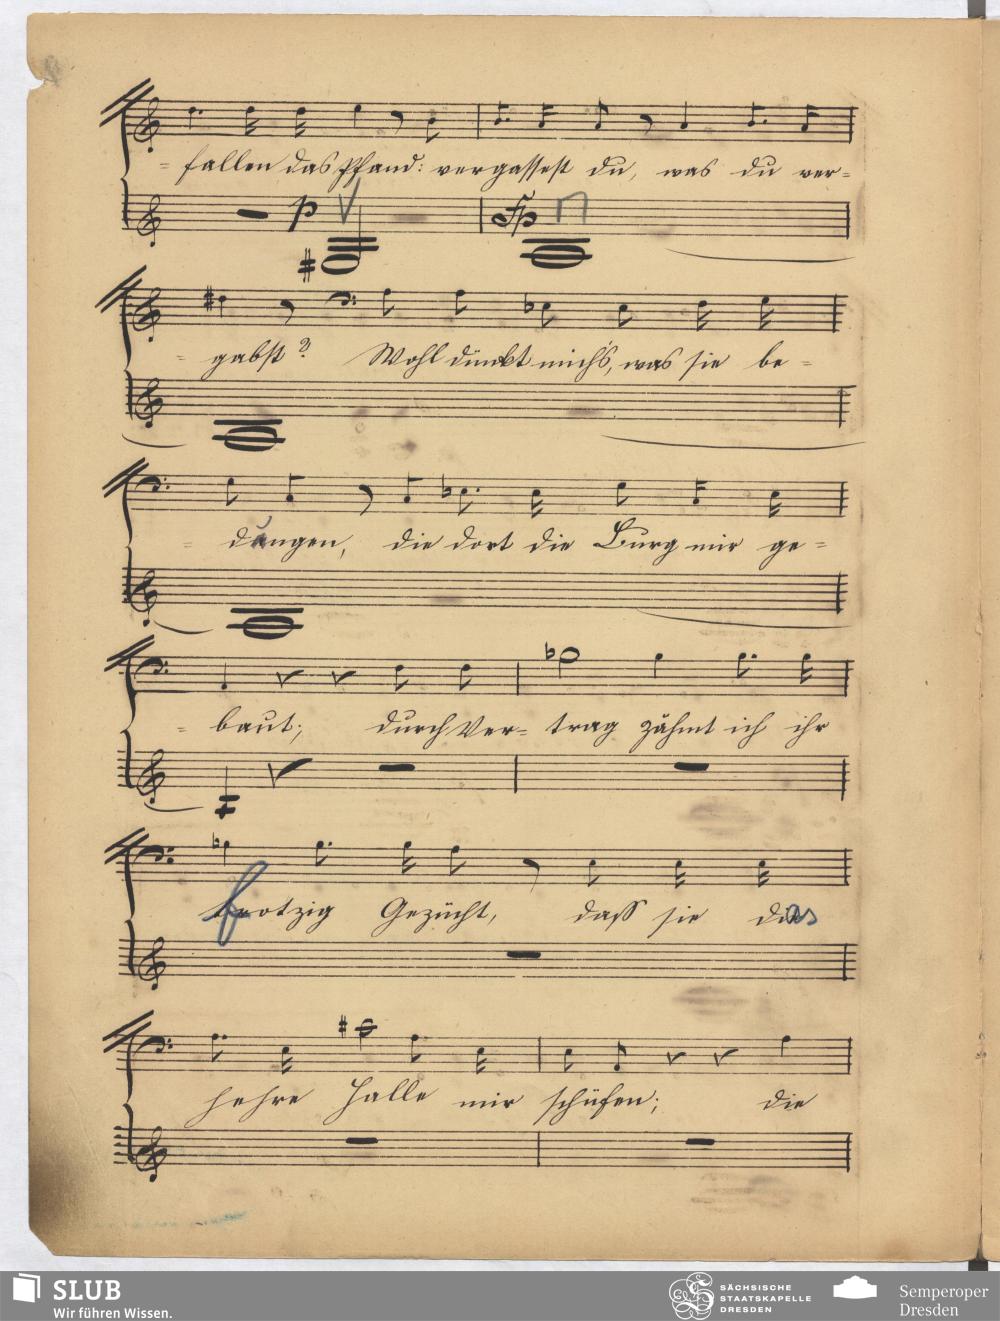 - fallen das Pfand: vergassest du, was du ver-
p
fp
- gabst? Wohl dünkt mich's, was sie be-
- dungen, die dort die Burg mir ge-
- baut; durch Ver- trag zähmt ich ihr
trotzig Gezücht, dass sie die
hehre Halle mir schüfen; die
SLUB
Wir führen Wissen.
SÄCHSISCHE
STAATSKAPELLE
DRESDEN
Semperoper
Dresden